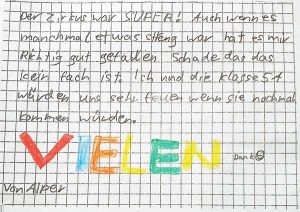 Der Zirkus war SUPER! Auch wenn es
manchmal etwas streng war hat es mir
Richtig gut gefallen Schade das das
kein fach ist. Ich und die Klasse 5-1
würden uns sehr feuen wenn sie nochmal
kommen würden.
VIELEN Dank
Von Alper